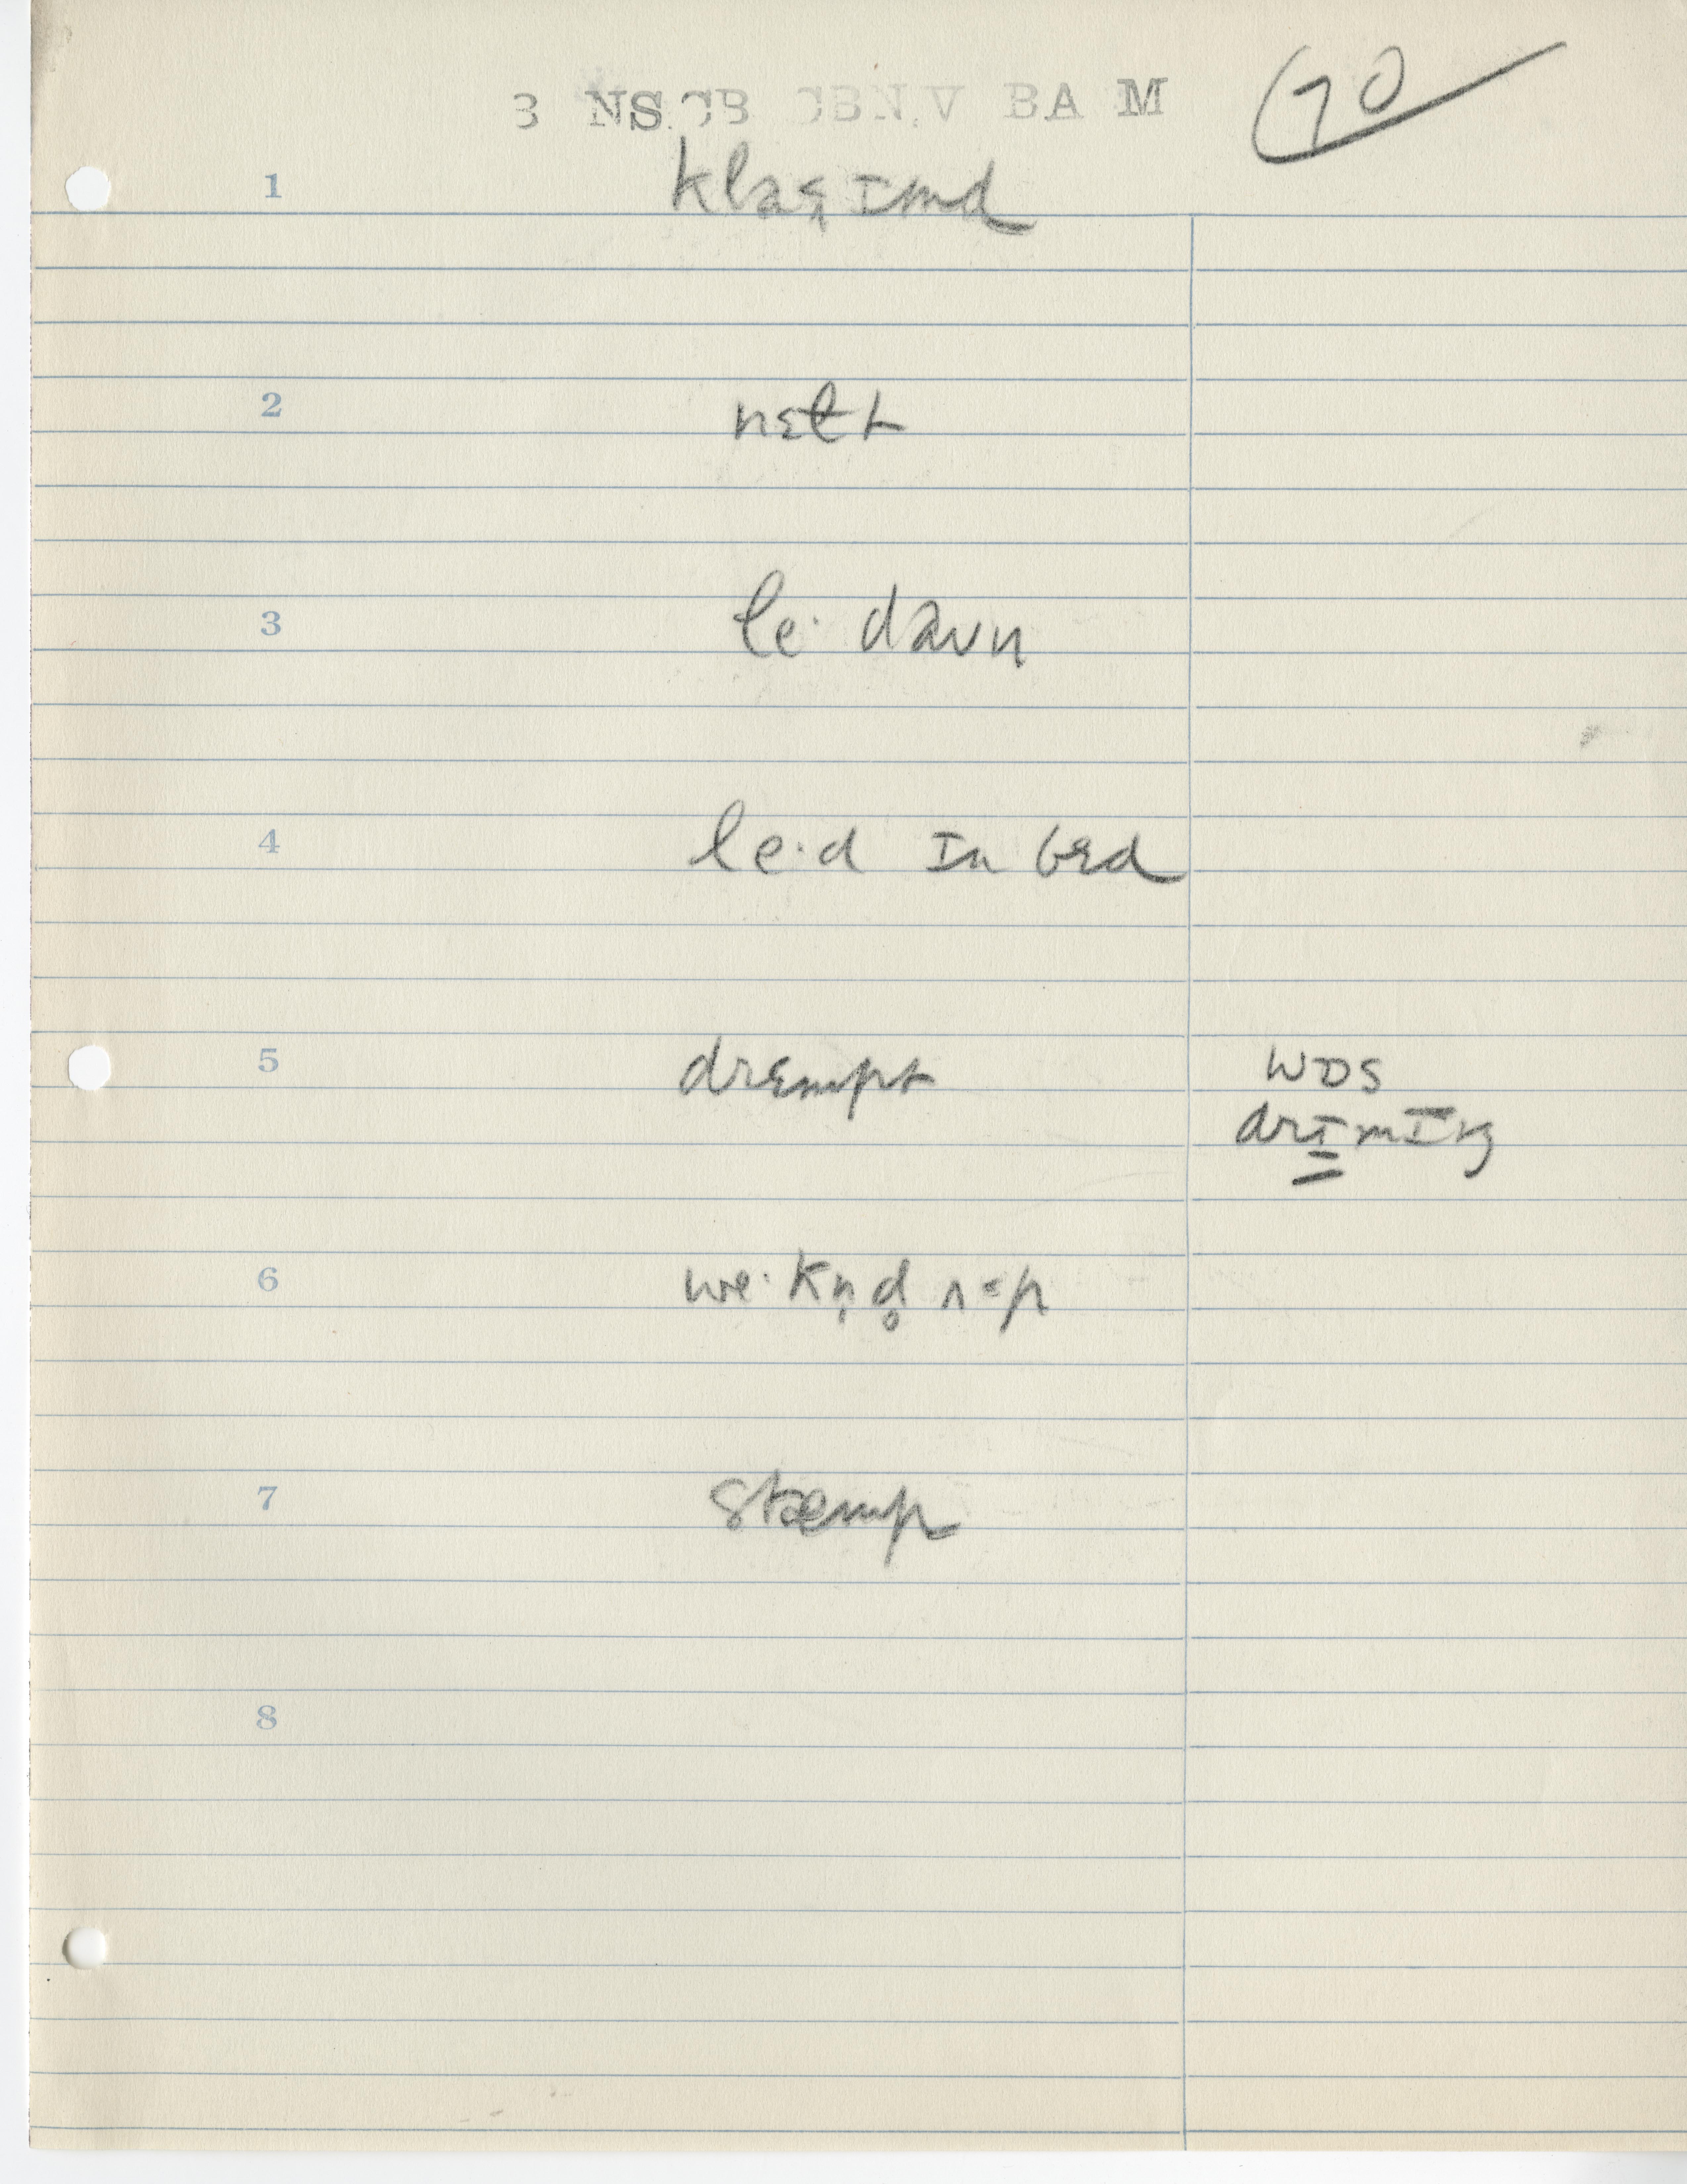 3 NS CB CBN V BA M
70
1
2
nɛt t
3
le· daʊn
4
le·d ɪn bɛd
5 drɛmpt wɒs
drɪmɪŋ
6
we·kn̩d̥ ʌ=p
7 stæmp
8